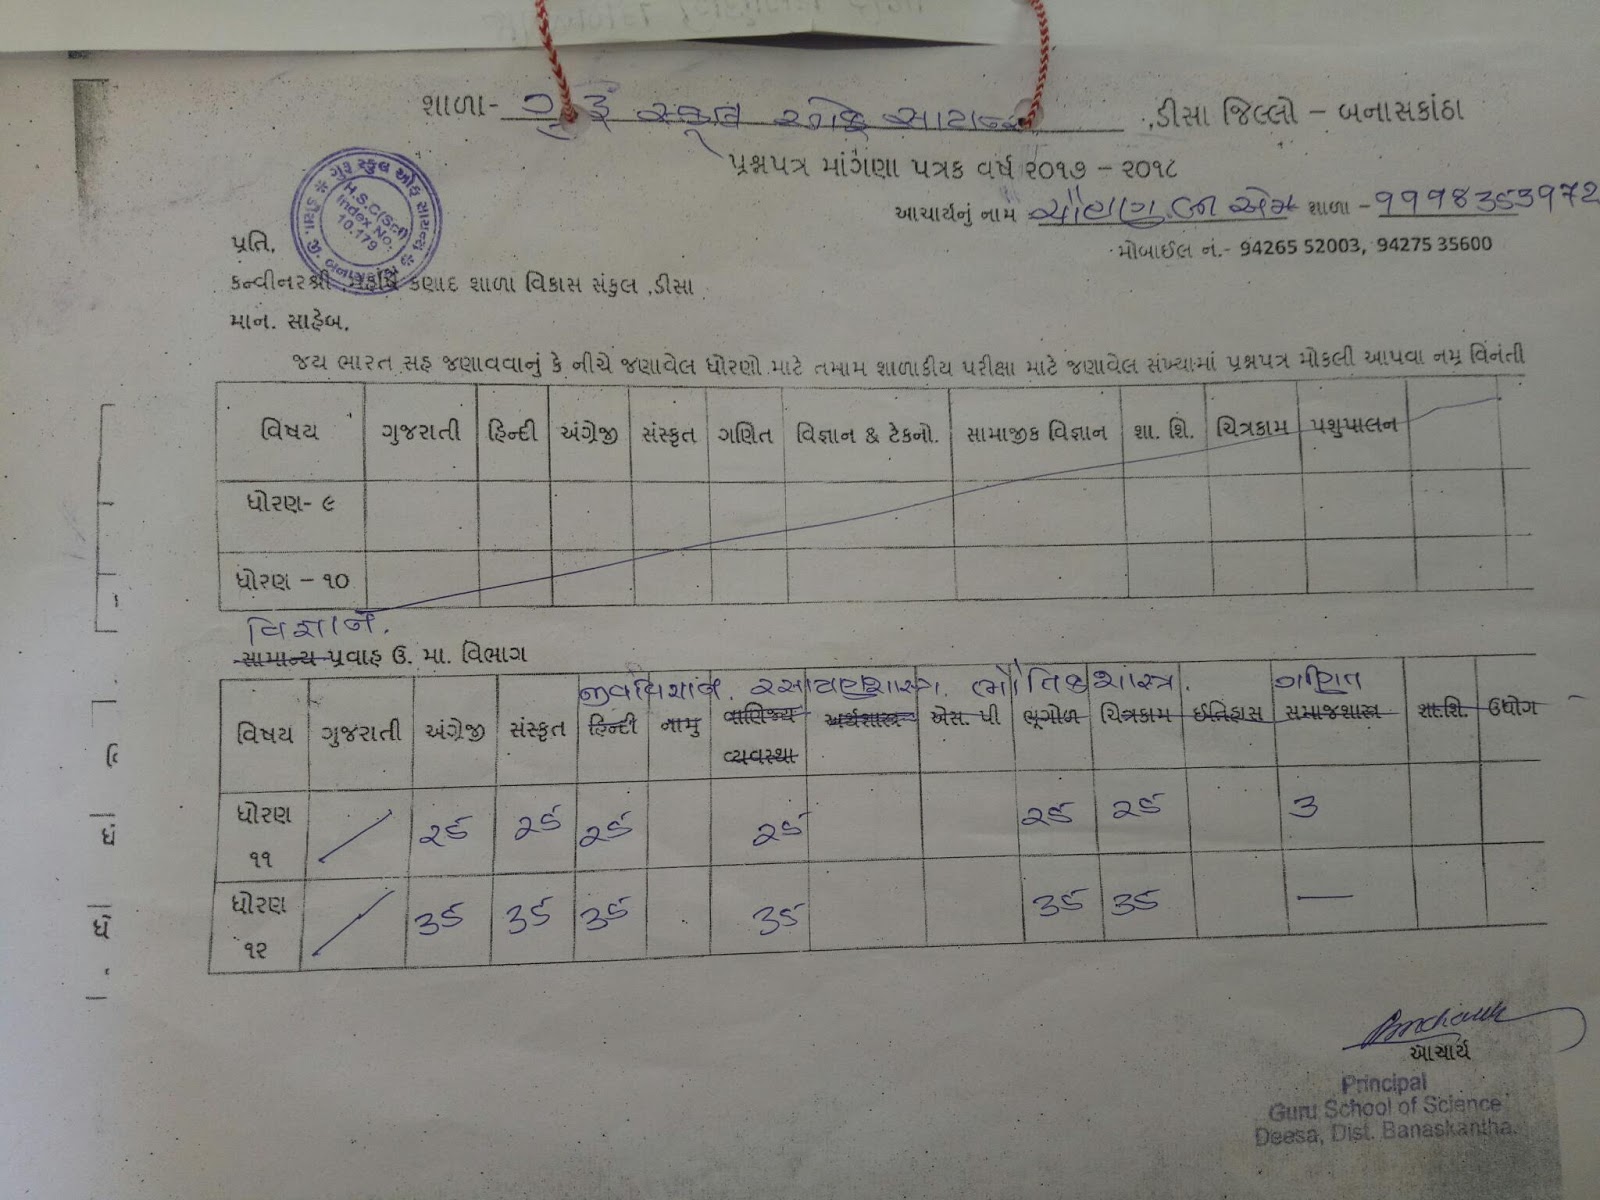 શાળા- ગુરૂ સ્કૂલ ઓફ સાયન્સ ,ડીસા જિલ્લો – બનાસકાંઠા
પ્રશ્નપત્ર માંગણા પત્રક વર્ષ ૨૦૧૭ – ૨૦૧૮
આચાર્યનું નામ ચૌહાણ બી એમ શાળા - ૯૯૯૮૩૬૩૯૭૨
મોબાઈલ નં.- 94265 52003, 94275 35600
ગુરૂ સ્કુલ ઓફ સાયન્સ
ડીસા. જી. બનાસકાંઠા
H.S.C(Sci)
Index No.
10.179
પ્રતિ,
કન્વીનરશ્રી મહર્ષિ કણાદ શાળા વિકાસ સંકુલ ,ડીસા
માન. સાહેબ,
જય ભારત સહ જણાવવાનું કે નીચે જણાવેલ ધોરણો માટે તમામ શાળાકીય પરીક્ષા માટે જણાવેલ સંખ્યામાં પ્રશ્નપત્ર મોકલી આપવા નમ્ર વિનંતી
વિષય ગુજરાતી હિન્દી અંગ્રેજી સંસ્કૃત ગણિત વિજ્ઞાન & ટેકનો. સામાજીક વિજ્ઞાન શા. શિ. ચિત્રકામ પશુપાલન
ધોરણ- ૯
ધોરણ – ૧૦
વિજ્ઞાન.
સામાન્ય પ્રવાહ ઉ. મા. વિભાગ
જીવવિજ્ઞાન. રસાયણશાસ્ત્ર. ભૌતિકશાસ્ત્ર. ગણિત
વિષય ગુજરાતી અંગ્રેજી સંસ્કૃત હિન્દી નામુ વાણિજ્ય અર્થશાસ્ત્ર એસ. પી ભૂગોળ ચિત્રકામ ઈતિહાસ સમાજશાસ્ત્ર શા.શિ. ઉધોગ
વ્યવસ્થા
ધોરણ ૨૬ ૨૬ ૨૬ ૨૬ ૨૬ ૨૬ ૩
૧૧
ધોરણ ૩૬ ૩૬ ૩૬ ૩૬ ૩૬ ૩૬ —
૧૨
આચાર્ય
Principal
Guru School of Science
Deesa, Dist. Banaskantha.